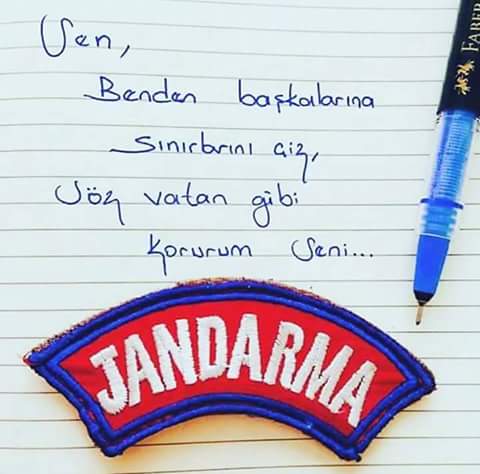 Sen,
Benden başkalarına
Sınırlarını çiz,
Söz vatan gibi
Korurum Seni...
JANDARMA
FABER